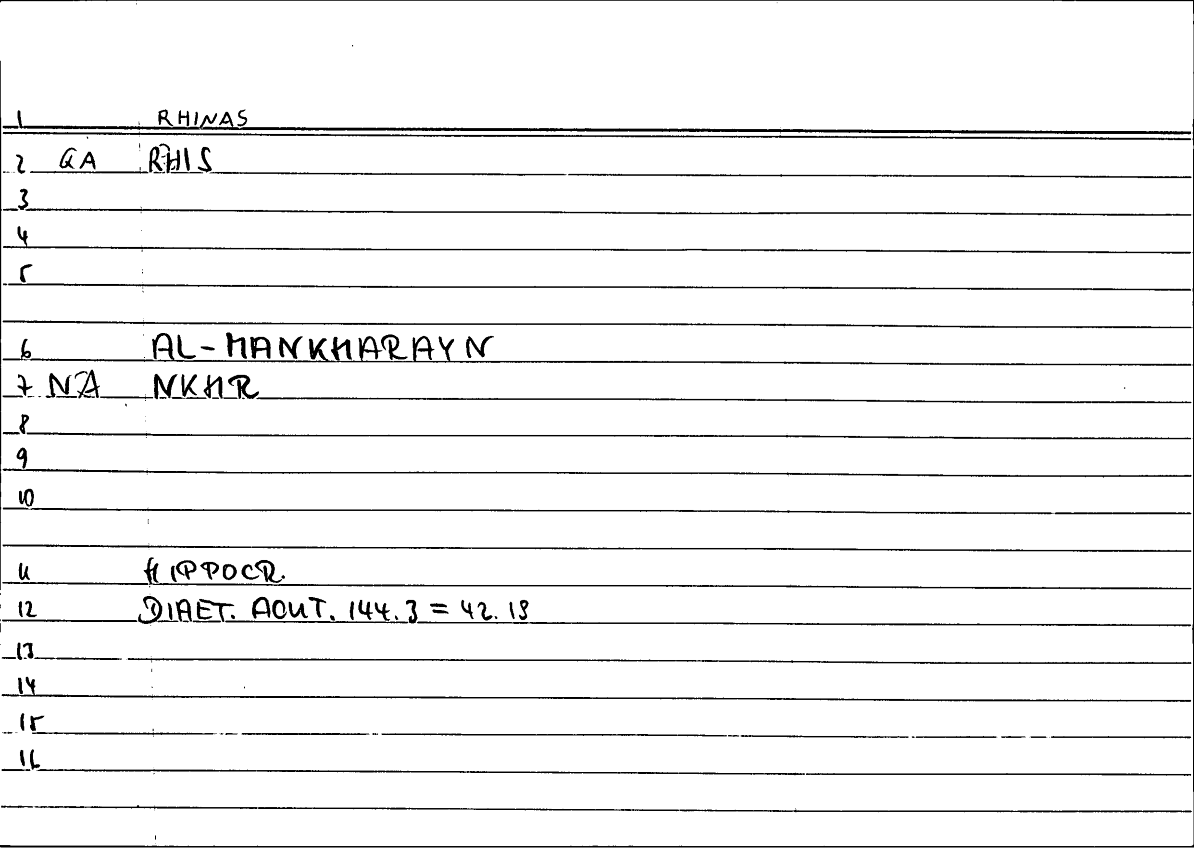 1 RHINAS
2 GA RHIS
3
4
5
6 AL-MANKHARAYN
7 NA NKHR
8
9
10
11 HIPPOCR.
12 DIAET. ACUT. 144.3 = 42.19
13
14
15
16